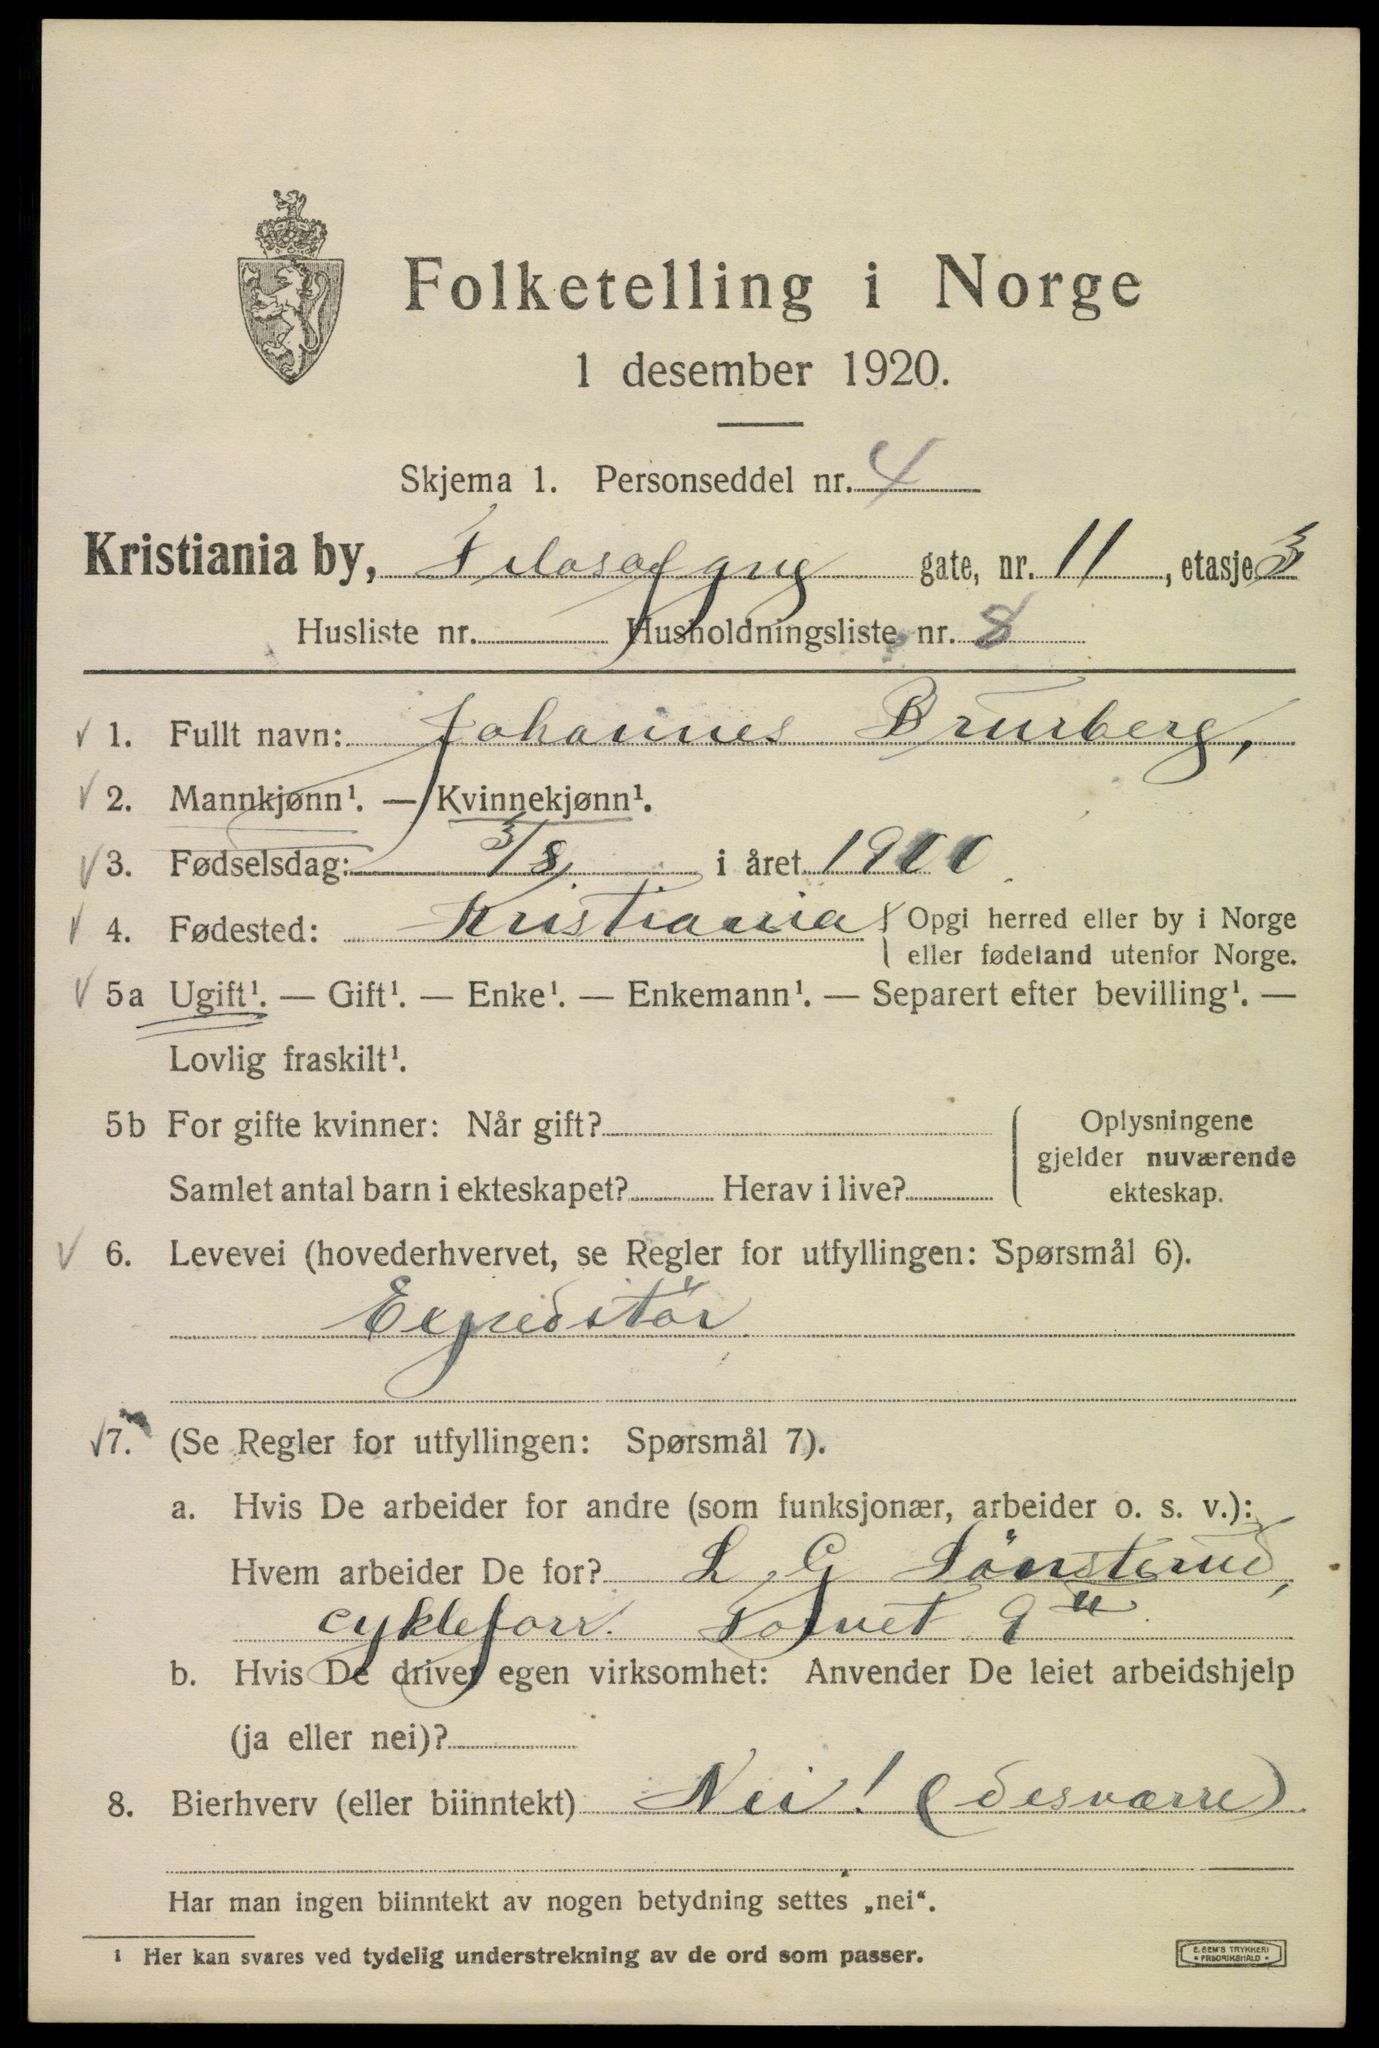 Folketelling i Norge
1 desember 1920.
Skjema 1. Personseddel nr. 4
Kristiania by, Filosofgng gate, nr. 11, etasje 3
Husliste nr. Husholdningsliste nr. 8
1. Fullt navn: Johannes Brurberg,
2. Mannkjønn¹. — Kvinnekjønn¹.
3. Fødselsdag: 3/8 i året 1900
4. Fødested: Kristiania { Opgi herred eller by i Norge
eller fødeland utenfor Norge.
5a Ugift¹. — Gift¹. — Enke¹. — Enkemann¹. — Separert efter bevilling¹. —
Lovlig fraskilt¹.
5b For gifte kvinner: Når gift? Oplysningene
gjelder nuværende
Samlet antal barn i ekteskapet? Herav i live? ekteskap.
6. Levevei (hovederhvervet, se Regler for utfyllingen: Spørsmål 6).
Expeditör
7. (Se Regler for utfyllingen: Spørsmål 7).
a. Hvis De arbeider for andre (som funksjonær, arbeider o. s. v.):
Hvem arbeider De for? L. G. Sönsterud,
cykleforr. Torvet 9
b. Hvis De driver egen virksomhet: Anvender De leiet arbeidshjelp
(ja eller nei)?
8. Bierhverv (eller biinntekt) Nei! (desværre)
Har man ingen biinntekt av nogen betydning settes „nei“.
¹ Her kan svares ved tydelig understrekning av de ord som passer.
E. SEM'S TRYKKERI
FREDRIKSHALD